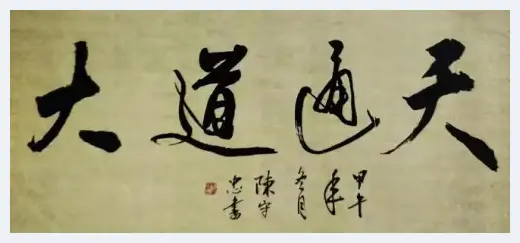 大道通天
甲午
年
冬月
陳守
忠書